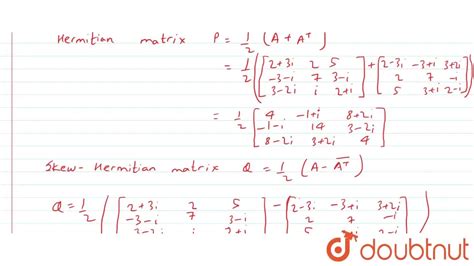 Hermitian matrix P = 1/2 (A + A^T)
= 1/2 ( [2+3i 2 5
-3-i 7 3-i
3-2i i 2+i] + [2-3i -3+i 3+2i
2 7 -i
5 3+i 2-i] )
= 1/2 [4 -1+i 8+2i
-1-i 14 3-2i
8-2i 3+2i 4]
Skew-Hermitian matrix Q = 1/2 (A - A̅^T̅)
Q = 1/2 ( [2+3i 2 5
-3-i 7 3-i
2+i] - [2-3i -3+i 3+2i
2 7 -i
5 2-i] )
doubtnut